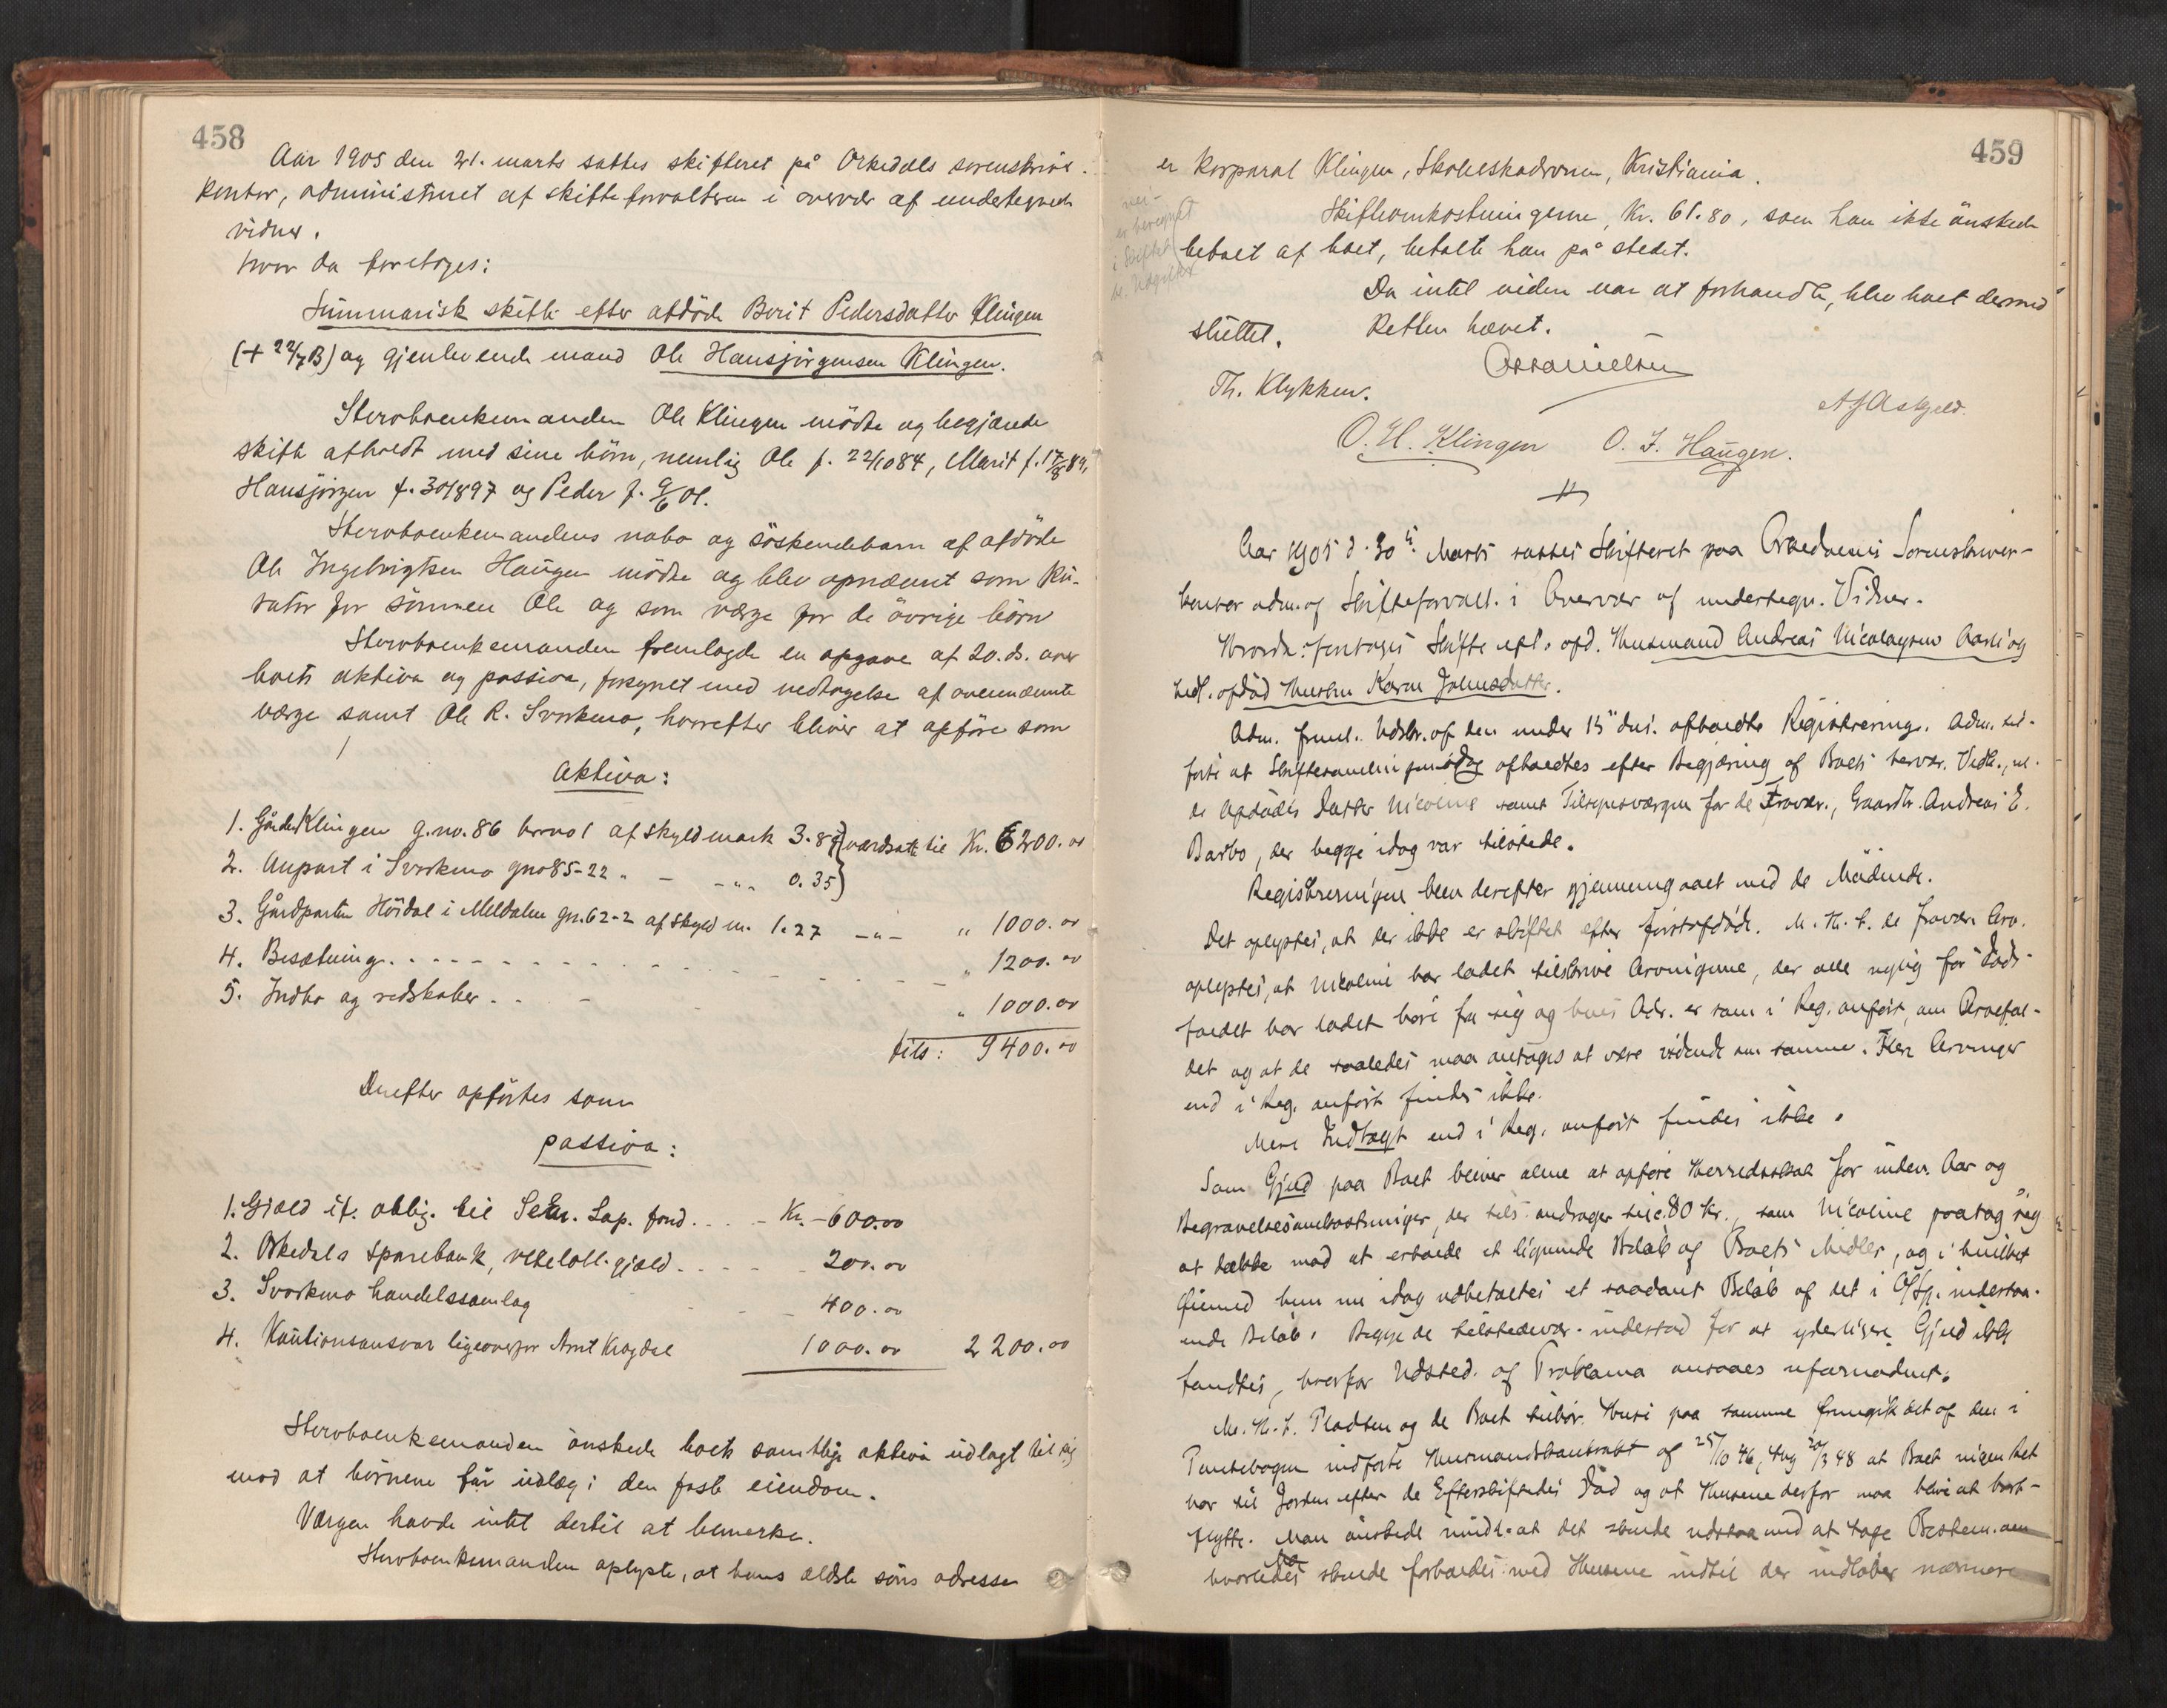 458
Aar 1905 den 21. marts sattes skifteret på Orkedals sorenskriv.
kontor, administreret af skifteforvalteren i overvær af undertegnede
vidner.
Hvor da foretoges:
Summarisk skifte efter afdöde Berit Pedersdatter Klingen
(+ 22/7 ) og gjenlevende mand Ole Hansjörgensen Klingen.
Stervboenkemanden Ole Klingen mödte og begjærede
skifte afholdt med sine börn, nemlig Ole f. 22/10 84, Marit f. 17/8 89,
Hansjörgen f. 30/8 97 og Peder f. 9/6 01.
Stervboenkemandens nabo og söskendebarn af afdöde
Ole Ingebrigtsen Haugen mödte og blev opnævnt som ku-
rator for sönnen Ole og som værge for de övrige börn
Stervboenkemanden fremlagde en opgave af 20. ds. over
boets aktiva og passiva, forsynet med vedtagelse af ovennævnte
værge samt Ole R. Svorkmo, hvorefter bliver at opföre som
Aktiva:
1. Gården Klingen g.no. 86 brno 1 af skyld mark 3.87 } værdsatte til Kr. 6200.00
2. Anpart i Svorkmo gno 85-22 " - - " - 0.35 }
3. Gårdparten Höidal i Meldalen gn. 62-2 af skyld m. 1.27 - " - " 1000.00
4. Besætning . . . . " 1200.00
5. Indbo og redskaber . . " 1000.00
tils: 9400.00
Derefter opförtes som
passiva:
1. Gjæld if. oblig. til Sekr. Lap. fond . . . . Kr. - 600.00
2. Orkedals sparebank, vekelobl. gjæld . . . . 200.00
3. Svorkmo handelssamlag 400.00
4. Kautionsansvar ligeoverfor Arnt Krogdal 1000.00 2200.00
Stervboenkemanden önskede boets samtlige aktiva udlagt til sig
mod at börnene får udlæg i den faste eiendom.
Værgen havde intet dertil at bemerke.
Stervboenkemanden oplyste, at hans ældste söns adresse
459
er korporal Klingen, Skoleskadronen, Kristiania.
Skifteomkostningerne, Kr. 61.80, som han ikke önskede
betalt af boet, betalte han på stedet.
Da intet videre var at forhandle, blev boet dermed
sluttet. Retten hævet.
Th. Klykken.
O. H. Klingen O. I. Haugen.
Aar 1905 d. 30te Marts sattes Skifteret paa Orkedalens Sorenskriver-
kontor adm. af Skifteforvalt. i Overvær af undertegn. Vidner.
Hvorda: foretoges Skifte eft. afd. Husmand Andreas Nicolaysen Aarli og
tidl. afdöd Hustru Karen Johnsdatter.
Adm. freml. Udskr. af den under 15de ds. afholdte Registrering. Adm. til-
förte at Skiftesamlingen idag afholdtes efter Begjæring af Boets hervær. Vedk., nl.
de Afdödes Datter Nicoline samt Tilsynsværgen for de Fravær., Gaardbr. Andreas E.
Barbo, der begge idag var tilstede.
Registreringen blev derefter gjennemgaaet med de Mödende.
Det oplystes, at der ikke er skiftet efter förstafdöde. M. H. t. de fravær. Arv.
oplystes, at Nicoline har ladet tilskrive Arvingerne, der alle nylig för Döds-
faldet har ladet höre fra sig og hvis Adr. er som i Reg. anfört, om Arvefal-
det og at de saaledes maa antages at være vidende om samme. Flere Arvinger
end i Reg. anfört findes ikke.
Mere Indtægt end i Reg. anfört findes ikke.
Som Gjæld paa Boet bliver alene at opföre Herredsskat for indev. Aar og
Begravelsesomkostninger, der tils. andrager til c. 80 Kr., som Nicoline paatog sig
at dække mod at erholde et lignende Belöb af Boets Midler, og i hvilket
Öiemed hun nu idag udbetaltes et saadant Belöb af det i Off. indestaa-
ende Belöb. Begge de tilstedevær. indestod for at yderligere Gjæld ikke
fandtes, hvorfor Udsted. af Proklama ansaaes ufornödent.
M. H. t. Pladsen og de Boet tilhör. Huse paa samme fremgik det af den i
Pantebogen indförte Husmandskontrakt af 25/10 46, tlyst 20/3 48 at Boet ingen Ret
har til Jorden efter de Efterskiftedes Död og at Husene derfor maa blive at bort-
flytte. Man önskede imidl. at det skulde udstaa med at tage Bestem. om
hvorledes der skulde forholdes med Husene indtil der indlöber nærmere